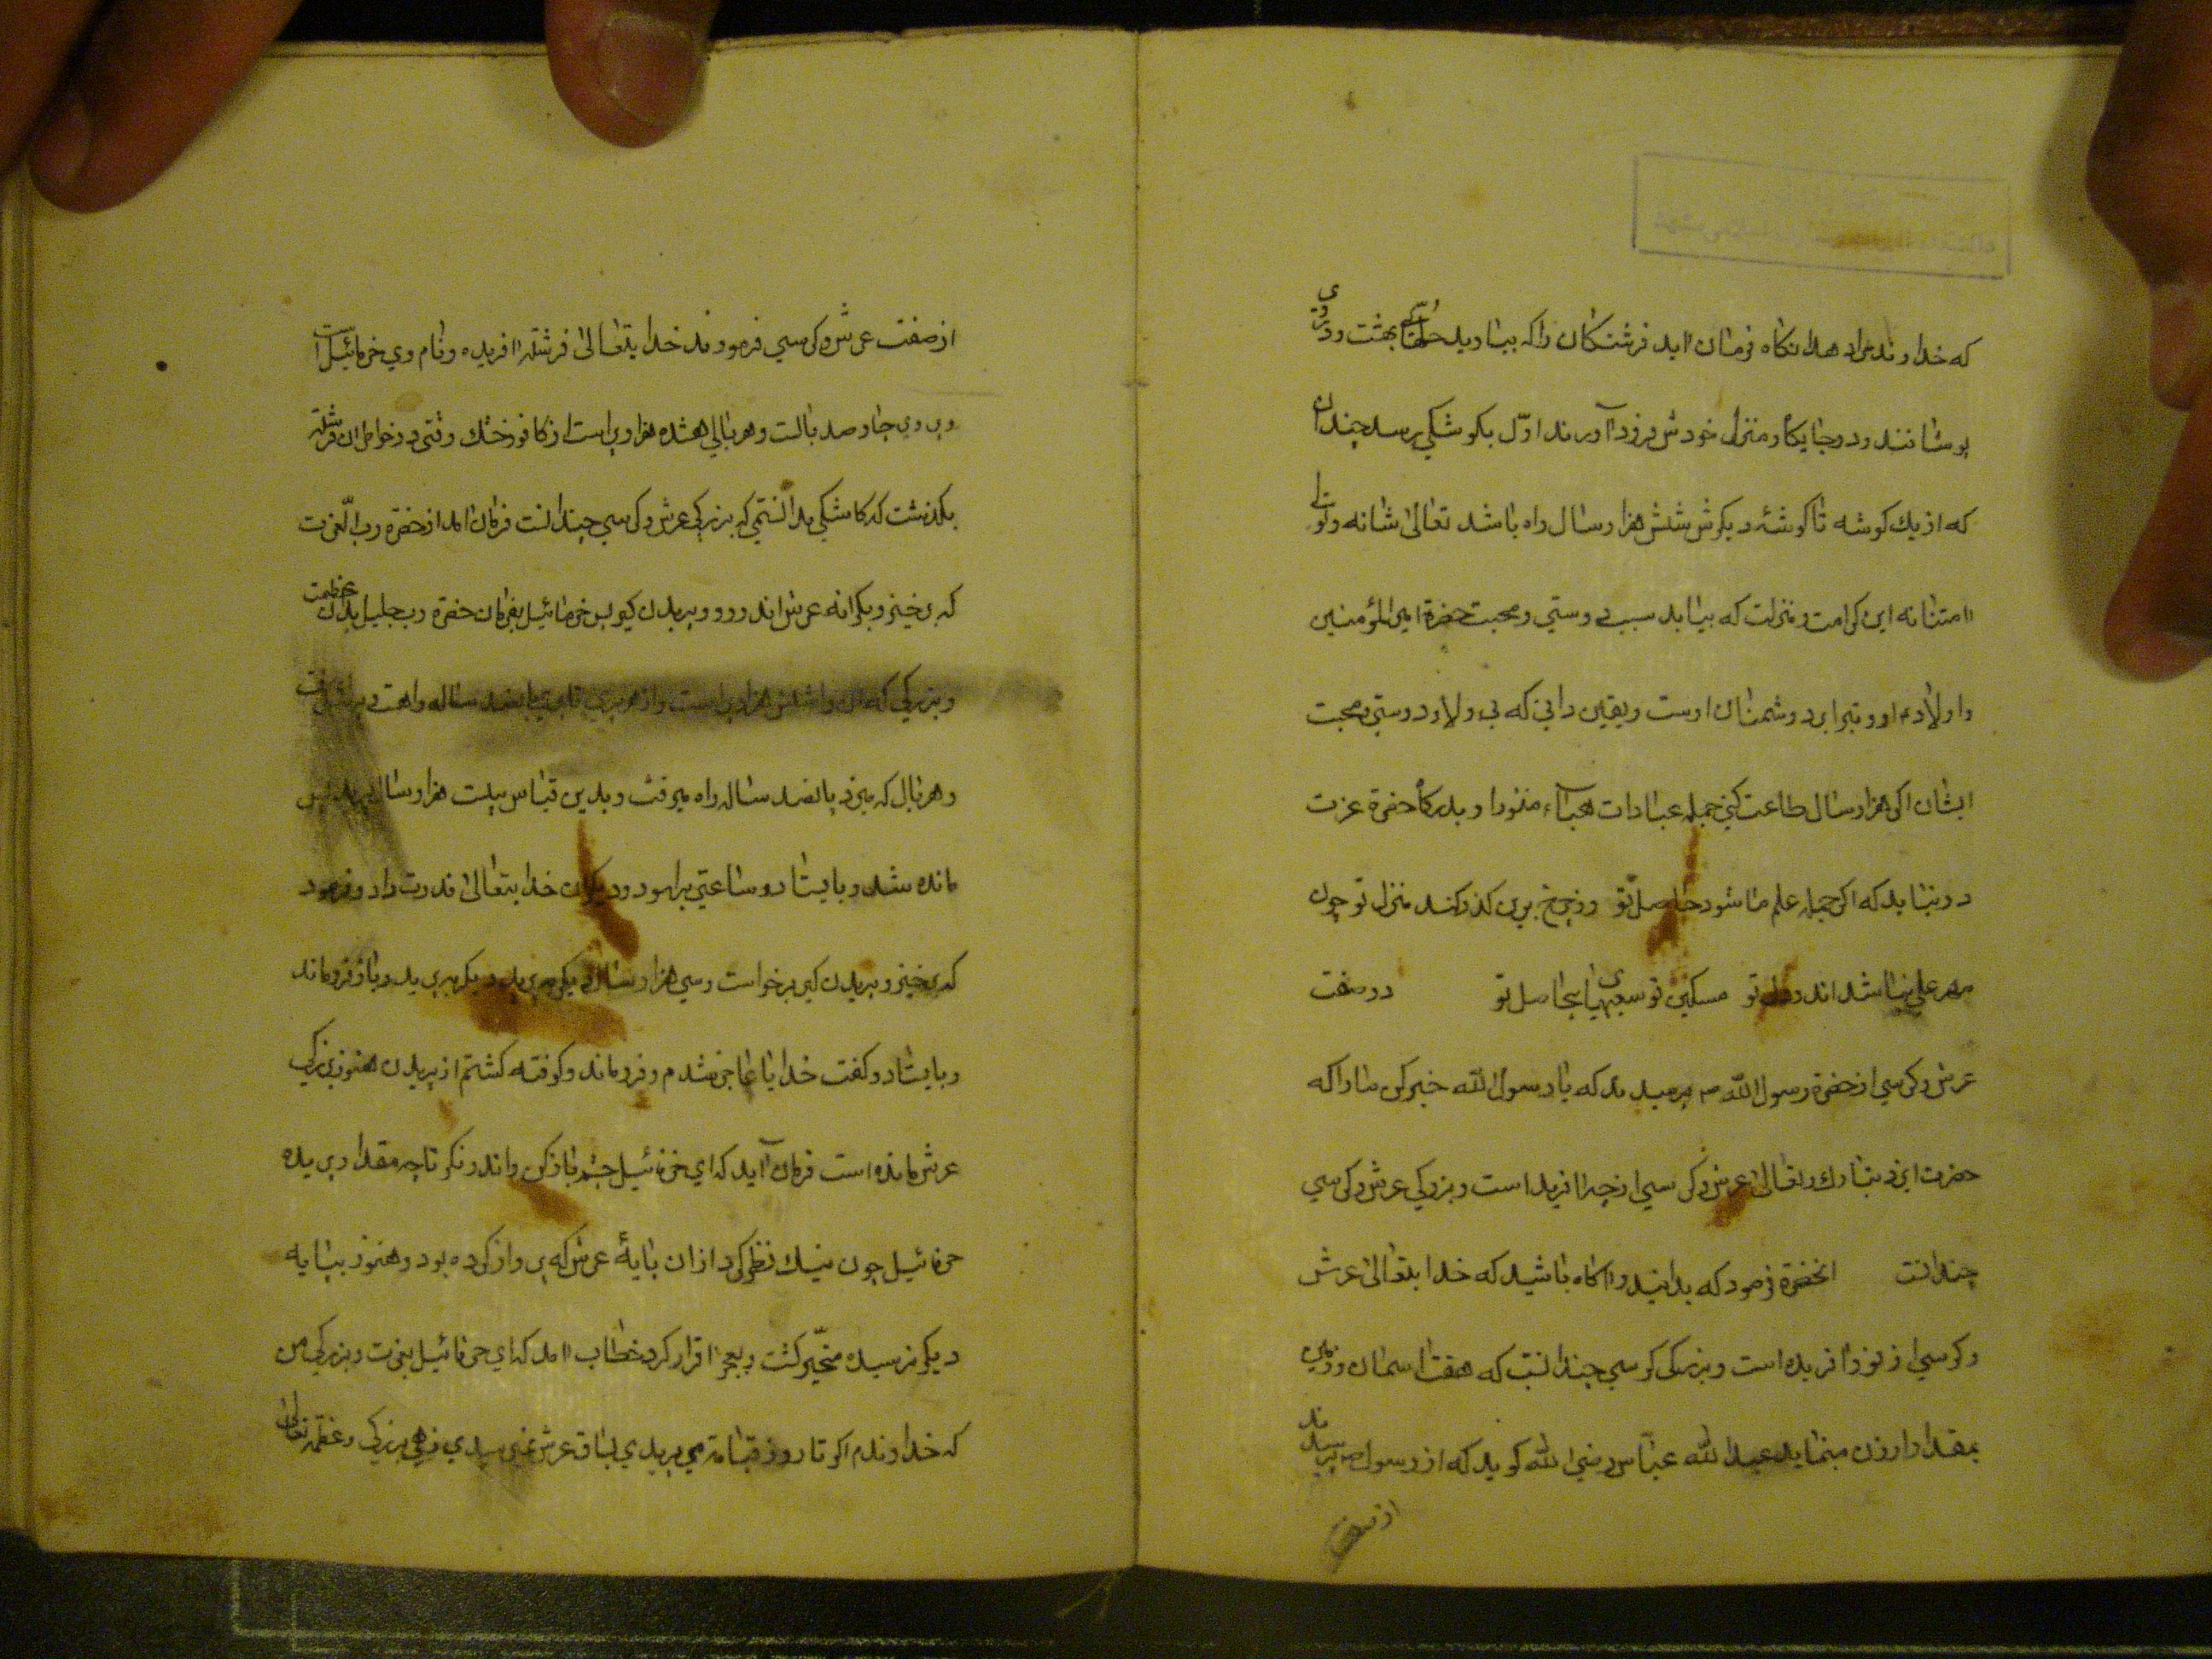 که خداوند مراد هد انکاه فرمان اید فرشتکان را که بیاورید حلّهای بهشت و در وی
پوشانند و در جایکاه و منزل خودش فرود آورند اوّل بکوشکی برسد چندان
که از یك کوشه تا کوشهٔ دیکرش شش هزار سال راه باشد تعالی شانه و تولی
امتنانه این کرامت و منزلت که بیابد سبب دوستی و محبت حضرة امیرالمؤمنین
و اولاد او و تبرا بر دشمنان اوست و یقین دانی که بی ولا و دوستی و محبت
ایشان اکر هزار سال طاعت کنی جمله عبادات هباء منثورا و بدرکاه حضرة عزت
در نیاید که اکر جمله علم ما شود حاصل تو وز چرخ برین کذر کند منزل تو چون
مهر علی نباشد اندر دل تو مسکین تو سعیهای بیحاصل تو در صفت
عرش و کرسی از حضرة رسول الله ص پرسیدند که یا رسول الله خبر کن ما را که
حضرت ایزد تبارك و تعالی عرش و کرسی از چه افریداست و بزرکی عرش و کرسی
چندانست انحضرة فرمود که بدانید و اکاه باشید که خدایتعالی عرش
و کرسی از نور افریده است و بزرکی کرسی چندانست که هفت اسمان و زمین
بمقدار ارزن مینماید عبدالله عبّاس رضی الله کوید که از رسول ص پرسیدند
از صفت
از صفت عرش و کرسی فرمودند خدایتعالی فرشتهٔ افریده و نام وی خرمائیل است
و بر وی چهار صد بالست و هر بالی هشده هزار پر است از کافور خشك وقتی در خواطر ان فرشته
بکذشت که کاشکی بدانستمی که بزرکی عرش و کرسی چندانست فرمان امد از حضرة رب العزت
که برخیز و بکرانه عرش اندر رو و پریدن کیر پس خرمائیل بفرمان حضرة رب جلیل بدان عظمت
و بزرکی که ان را شش هزار پر است و از هر پری تا پری پانصد ساله راهست در پرش رفت
و هر بال که میزد پانصد ساله راه میرفت و بدین قیاس بیست هزار سال پرید پس
مانده شد و بایستاد و ساعتی براسود و دیکر ان خدایتعالی قدرت داد و فرمود
که برخیز و پریدن کیر برخواست و سی هزار سال دیکر پرید و دیکر پرید و باز فرو ماند
و بایستاد و کفت خدایا عاجز شدم و فرو ماند و کوفته کشتم از پریدن هنوز بزرکی
عرش مانده است فرمان آید که ای خرمائیل چشم باز کن و اندر نکر تا چه مقدار پریده
خرمائیل چون نیك نظر کرد ازان پایهٔ عرش که پرواز کرده بود و هنوز بپایه
دیکر نرسیده متحیّر کشت و بعجز اقرار کرد خطاب امد که ای خرمائیل بعزت و بزرکی من
که خداوندم اکر تا روز قیامة می پریدی بساق عرش نمی رسیدی زهی بزرکی و عظمة تعالی